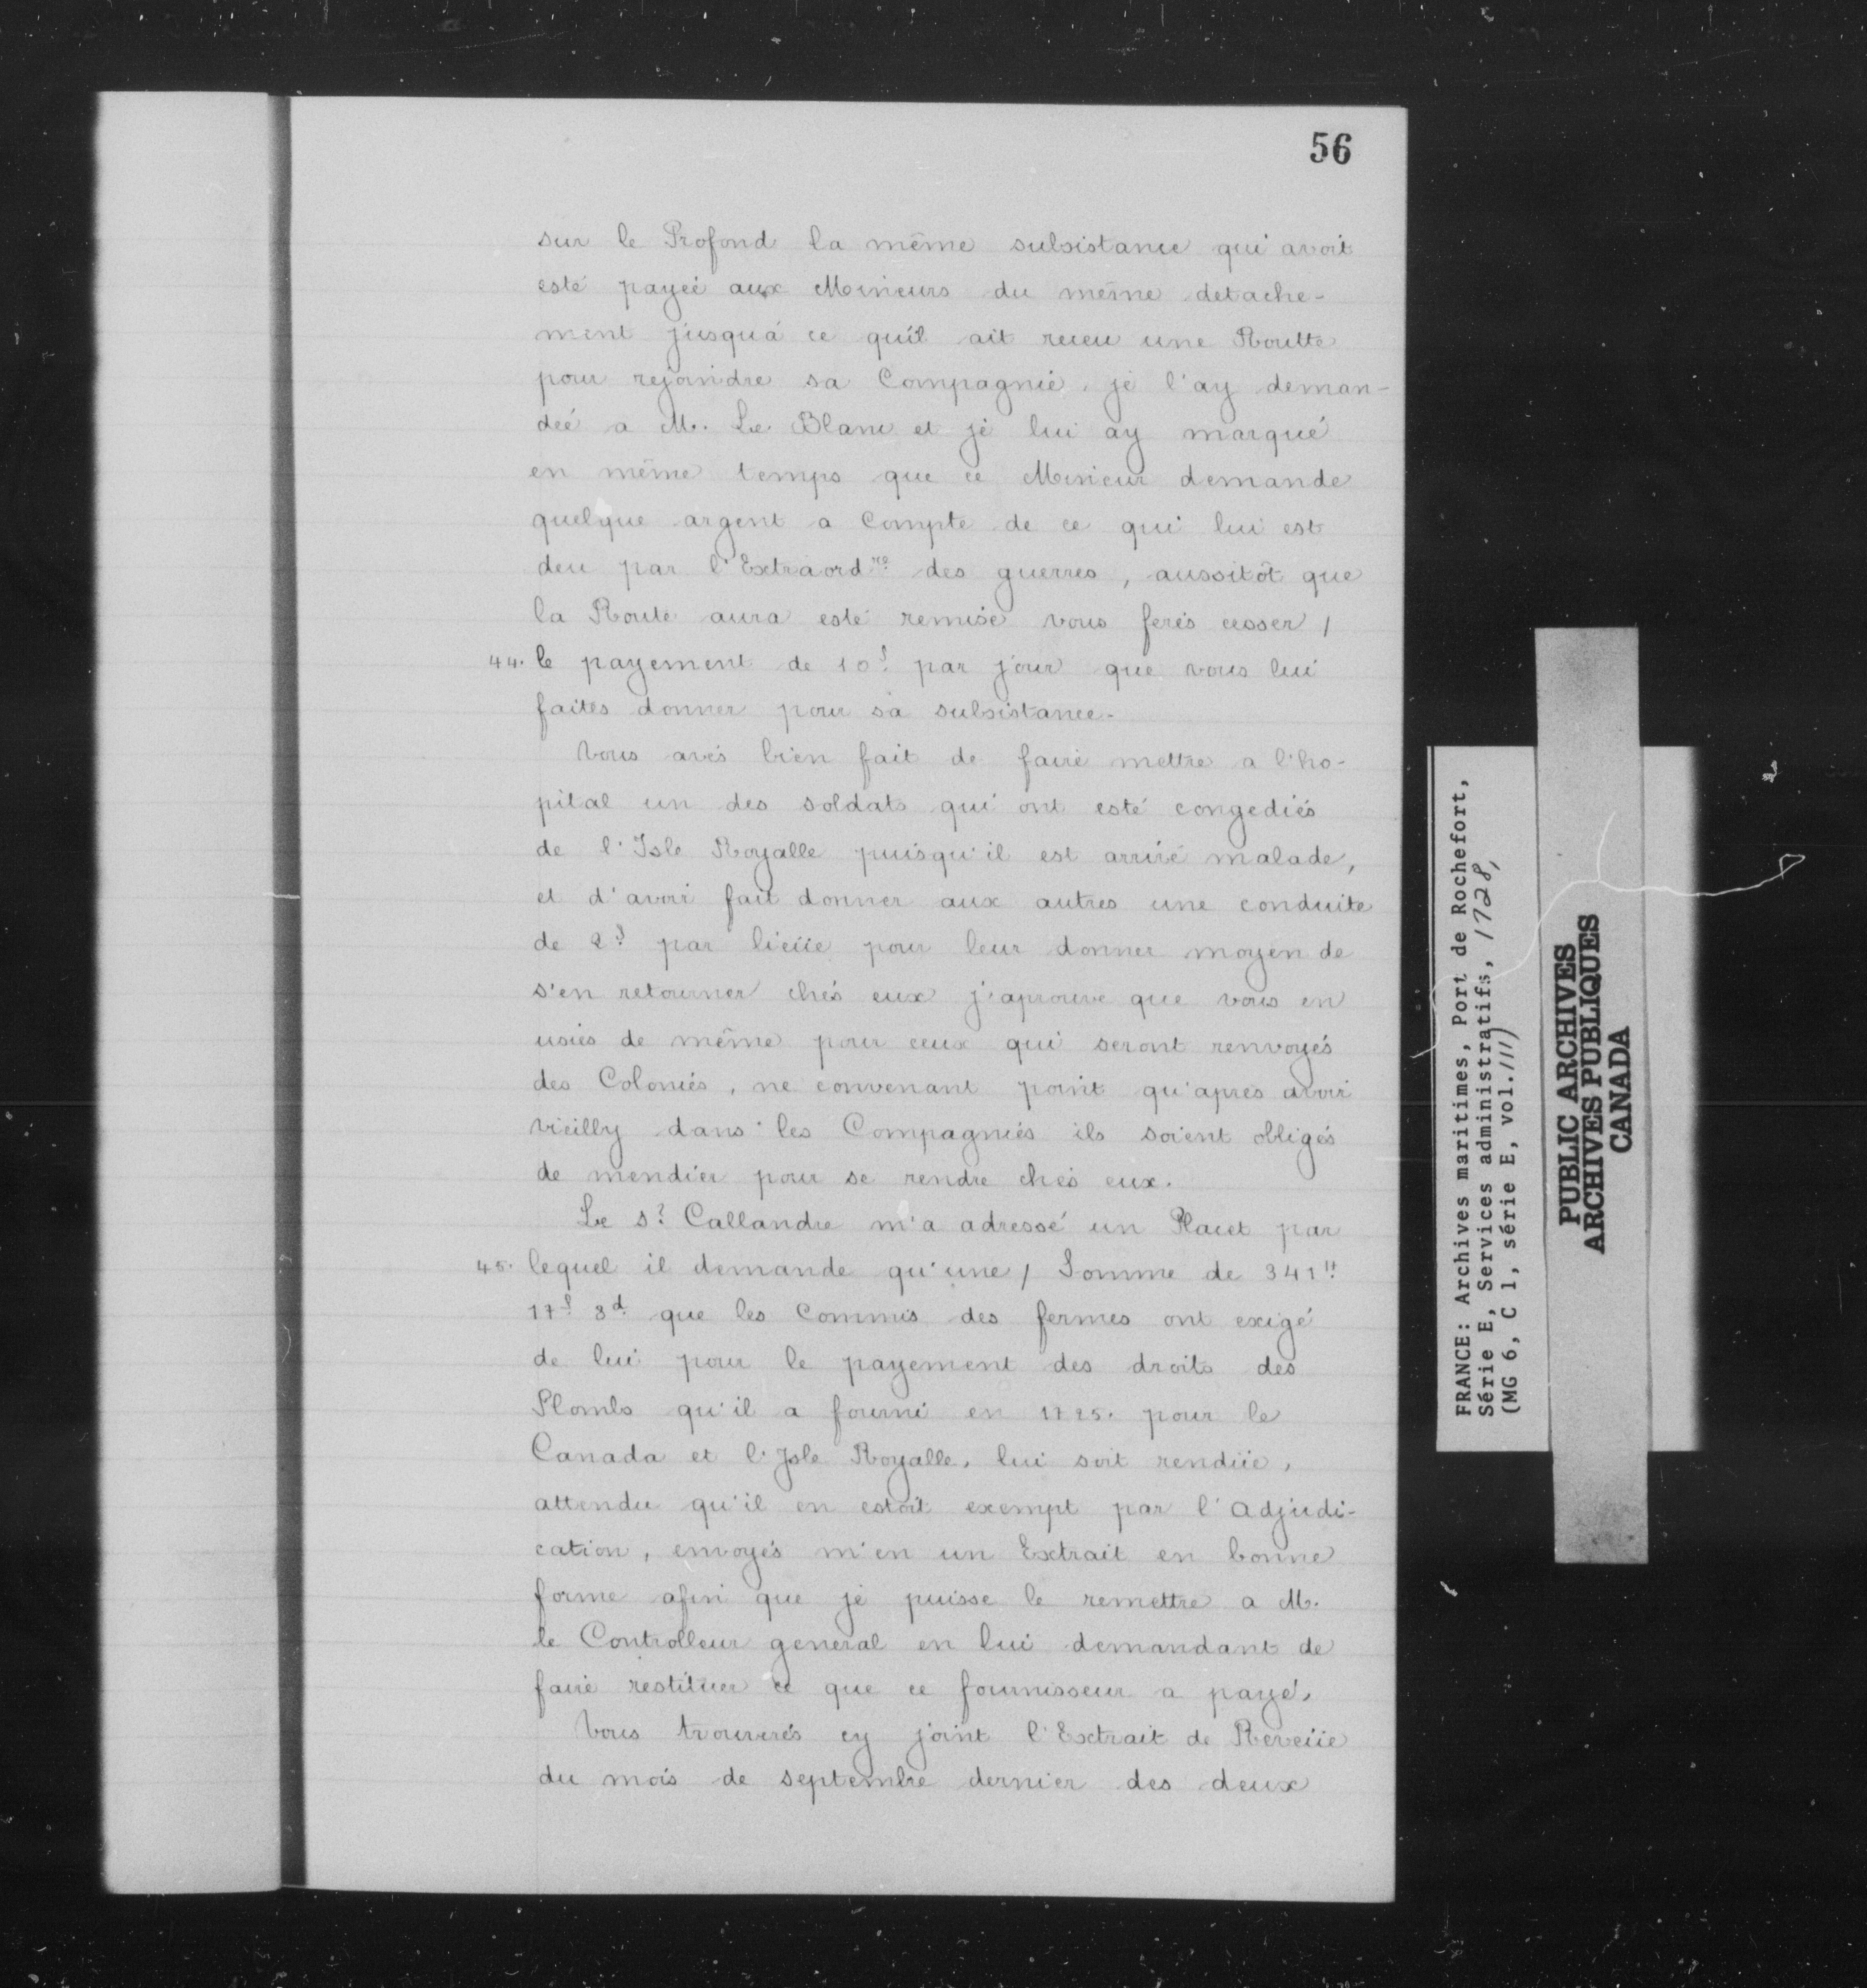 56
sur le Profond la même subsistance qui avoit
esté payée aux Mineurs du même detache-
ment jusqu'á ce qu'il ait receu une Routte
pour rejoindre sa Compagnie. je l'ay deman-
dée a M. Le Blanc et je lui ay marqué
en même temps que ce Mineur demande
quelque argent a Compte de ce qui lui est
deu par l'Extraord.re des guerres, aussitôt que
la Route aura esté remise vous ferés cesser /
44. le payement de 10s. par jour que vous lui
faites donner pour sa subsistance.
Vous avés bien fait de faire mettre a l'ho-
pital un des soldats qui ont esté congediés
de l'Isle Royalle puisqu'il est arrivé malade,
et d'avoir fait donner aux autres une conduite
de 2s. par lieüe pour leur donner moyen de
s'en retourner chés eux j'aprouve que vous en
usiés de même pour ceux qui seront renvoyés
des Colonies, ne convenant point qu'apres avoir
vieilly dans les Compagnies ils soient obligés
de mendier pour se rendre chés eux.
Le Sr. Callandre m'a adressé un Placet par
45. lequel il demande qu'une / Somme de 341lt.
17s. 3d. que les Commis des fermes ont exigé
de lui pour le payement des droits des
Plombs qu'il a fourni en 1725. pour le
Canada et l'Isle Royalle, lui soit rendüe,
attendu qu'il en estoit exempt par l'adjudi-
cation, envoyés m'en un Extrait en bonne
forme afin que je puisse le remettre a M.
le Controlleur general en lui demandant de
faire restituer ce que ce fournisseur a payé.
Vous trouverés cy joint l'Extrait de Reveüe
du mois de septembre dernier des deux
FRANCE: Archives maritimes, Port de Rochefort,
Série E, Services administratifs, 1728,
(MG 6, C 1, série E, vol. 111)
PUBLIC ARCHIVES
ARCHIVES PUBLIQUES
CANADA